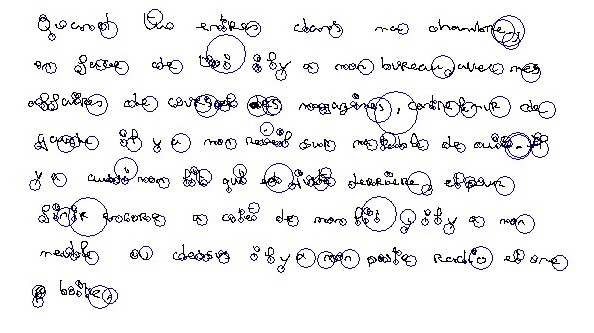 Quand tu entres dans ma chambre,
en face de toi il y a mon bureau, avec mes
affaires de cours et des magazines, contre le mur de
gauche il y a mon reveil sur ma table de nuit. Il
y a aussi mon lit qui est juste derrière, et pour
finir encore a coté de mon lit, il y a mon
meuble ou dessus il y a mon poste radio et une
boite.